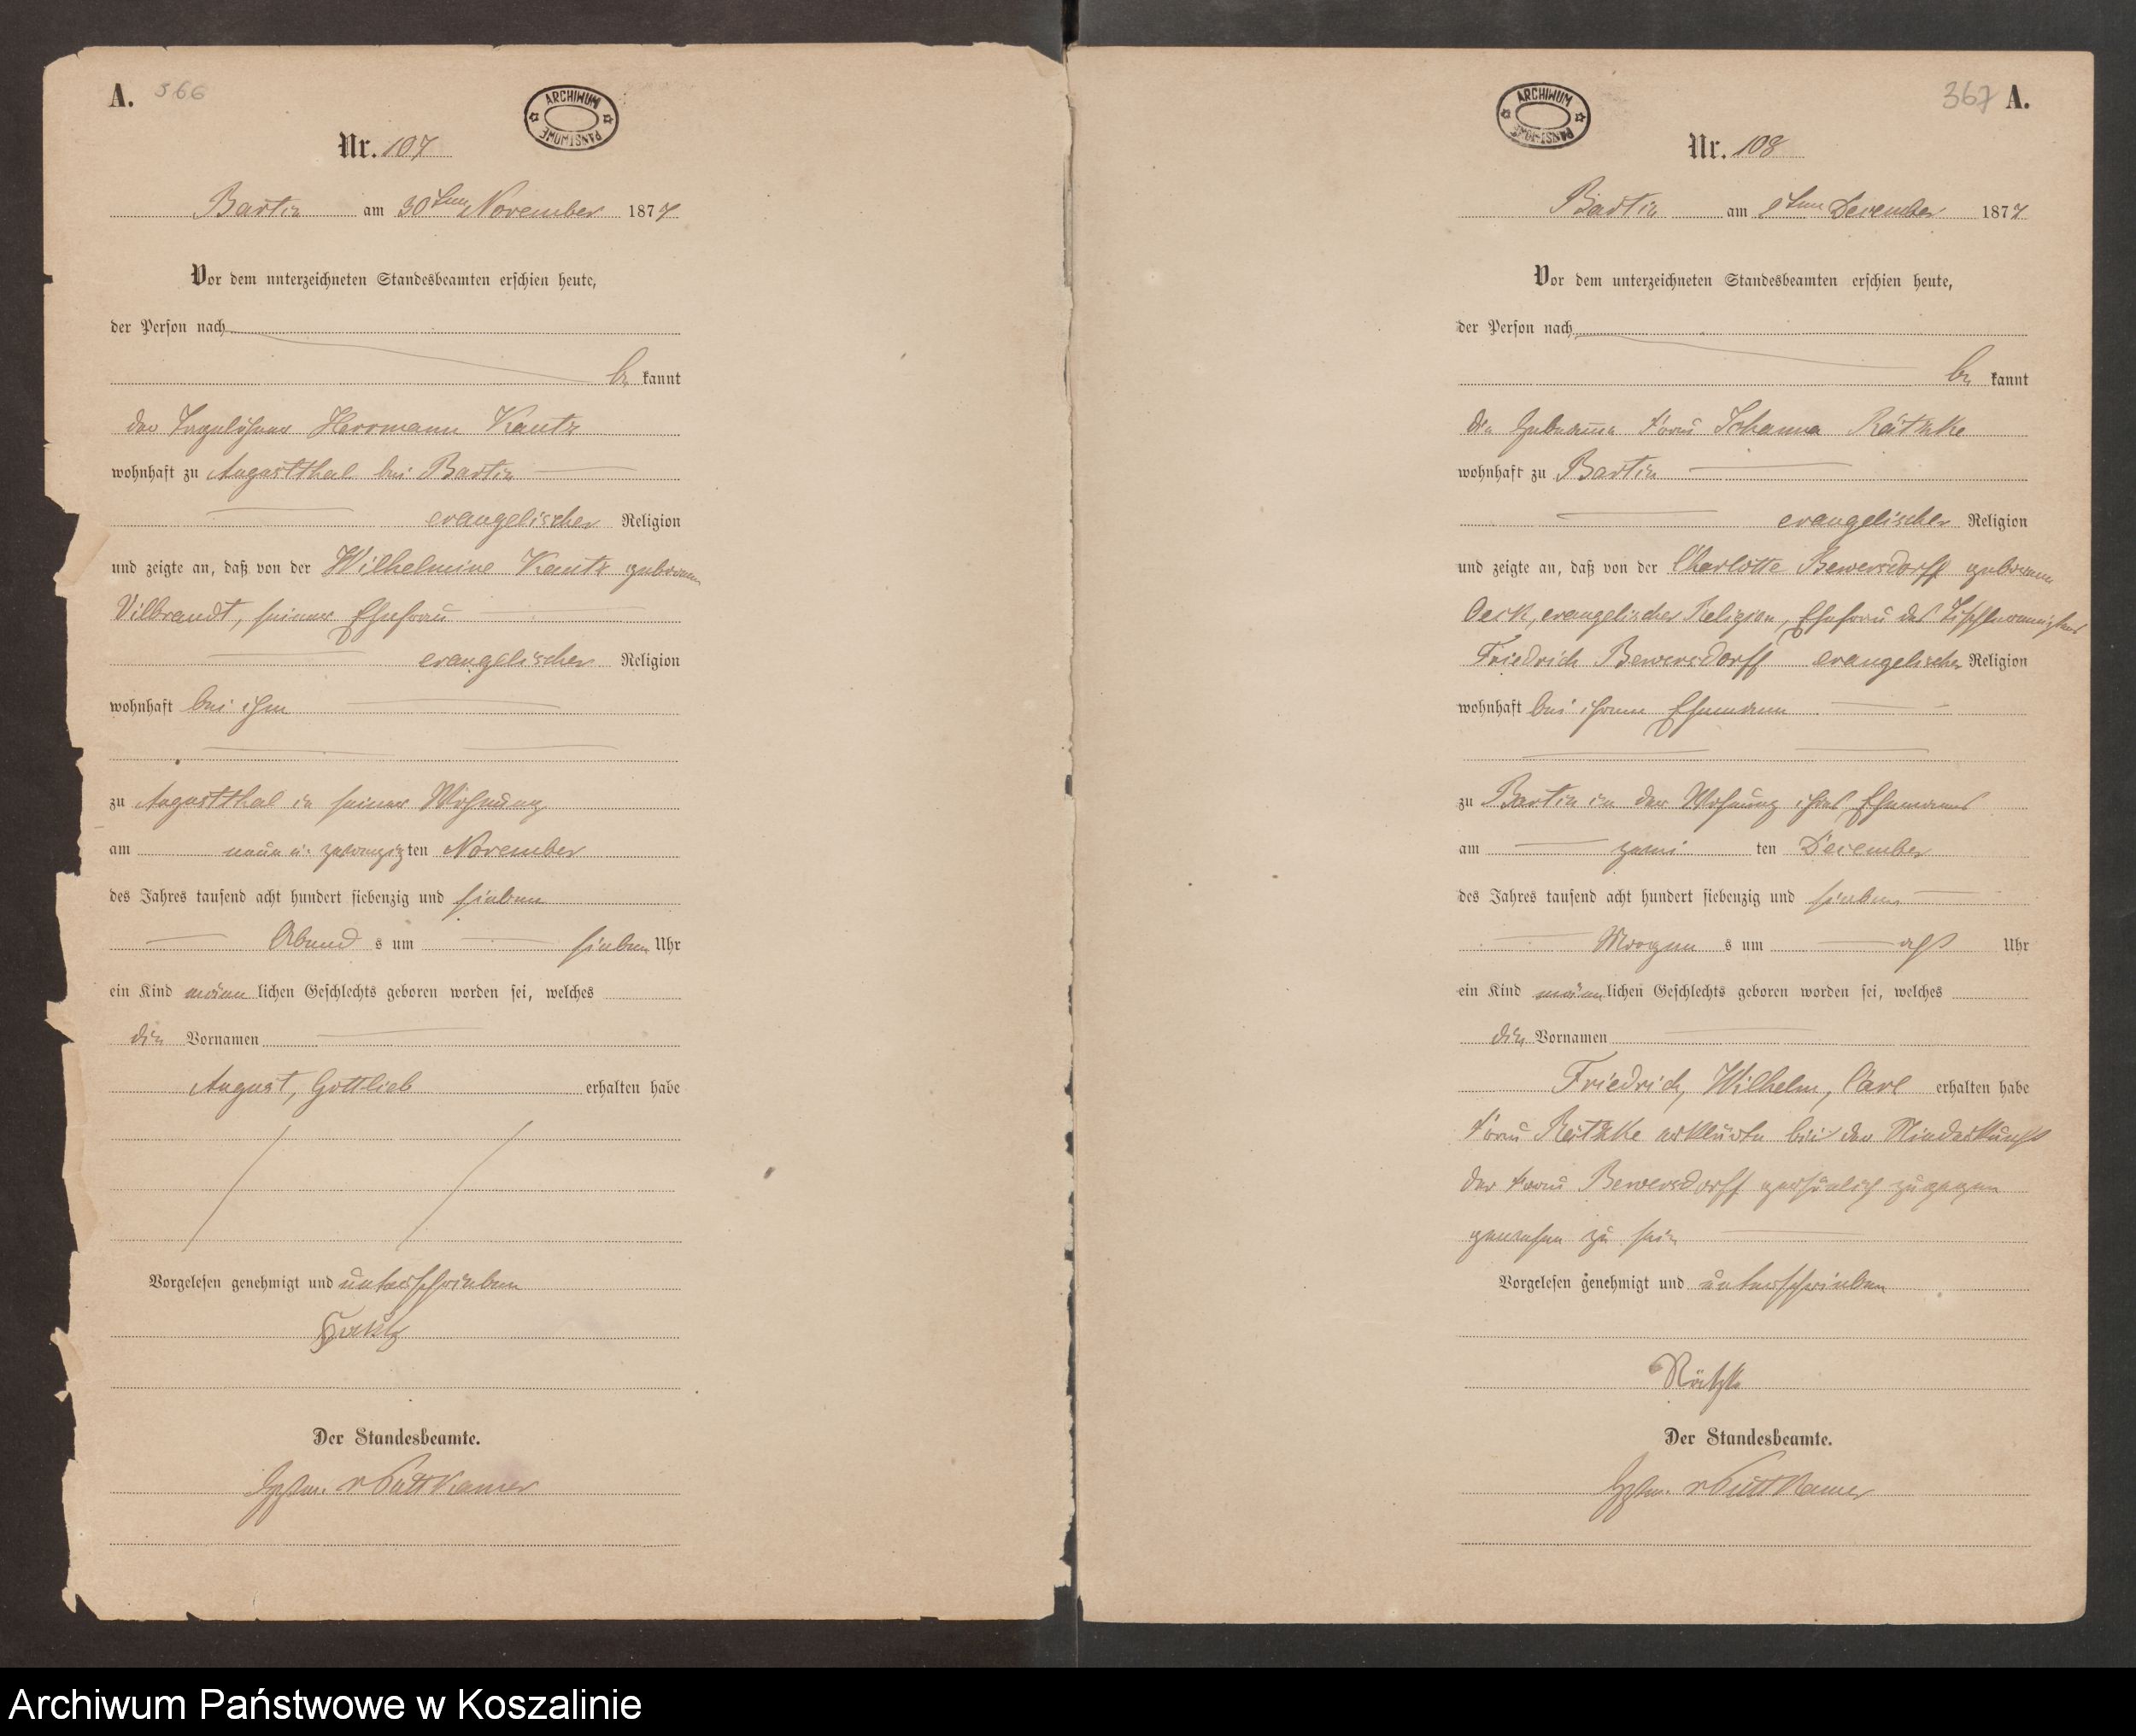 A. 366
ARCHIWUM PAŃSTWOWE
Nr. 107
Bartin am 30ten November 1877
Vor dem unterzeichneten Standesbeamten erschien heute,
der Person nach
be kannt
der Tagelöhner Herrmann Kautz
wohnhaft zu Augustthal bei Bartin
evangelischer Religion
und zeigte an, daß von der Wilhelmine Kautz geborene
Vilbrandt, seiner Ehefrau
evangelischer Religion
wohnhaft bei ihm
zu Augustthal in seiner Wohnung
am neun u. zwanzigten November
des Jahres tausend acht hundert siebenzig und sieben
Abend s um sieben Uhr
ein Kind männ lichen Geschlechts geboren worden sei, welches
die Vornamen
August, Gottlieb erhalten habe
Vorgelesen genehmigt und unterschrieben
Der Standesbeamte.
v Puttkamer
367 A.
ARCHIWUM PAŃSTWOWE
Nr. 108
Bartin am 8ten December 1877
Vor dem unterzeichneten Standesbeamten erschien heute,
der Person nach
be kannt
die Hebamme Frau Johanna Rätzke
wohnhaft zu Bartin
evangelischer Religion
und zeigte an, daß von der Charlotte Bewersdorff geborene
evangelischer Religion, Ehefrau des Tischlermeisters
Friedrich Bewersdorff evangelischer Religion
wohnhaft bei ihrem Ehemann
zu Bartin in der Wohnung ihres Ehemanns
am zwei ten December
des Jahres tausend acht hundert siebenzig und sieben
Morgen s um acht Uhr
ein Kind männ lichen Geschlechts geboren worden sei, welches
die Vornamen
Friedrich, Wilhelm, Carl erhalten habe
Frau Rätzke erklärte bei der Niederkunft
der Frau Bewersdorff persönlich zugegen
gewesen zu sein
Vorgelesen genehmigt und unterschrieben
Rätzke
Der Standesbeamte.
v Puttkamer
Archiwum Państwowe w Koszalinie